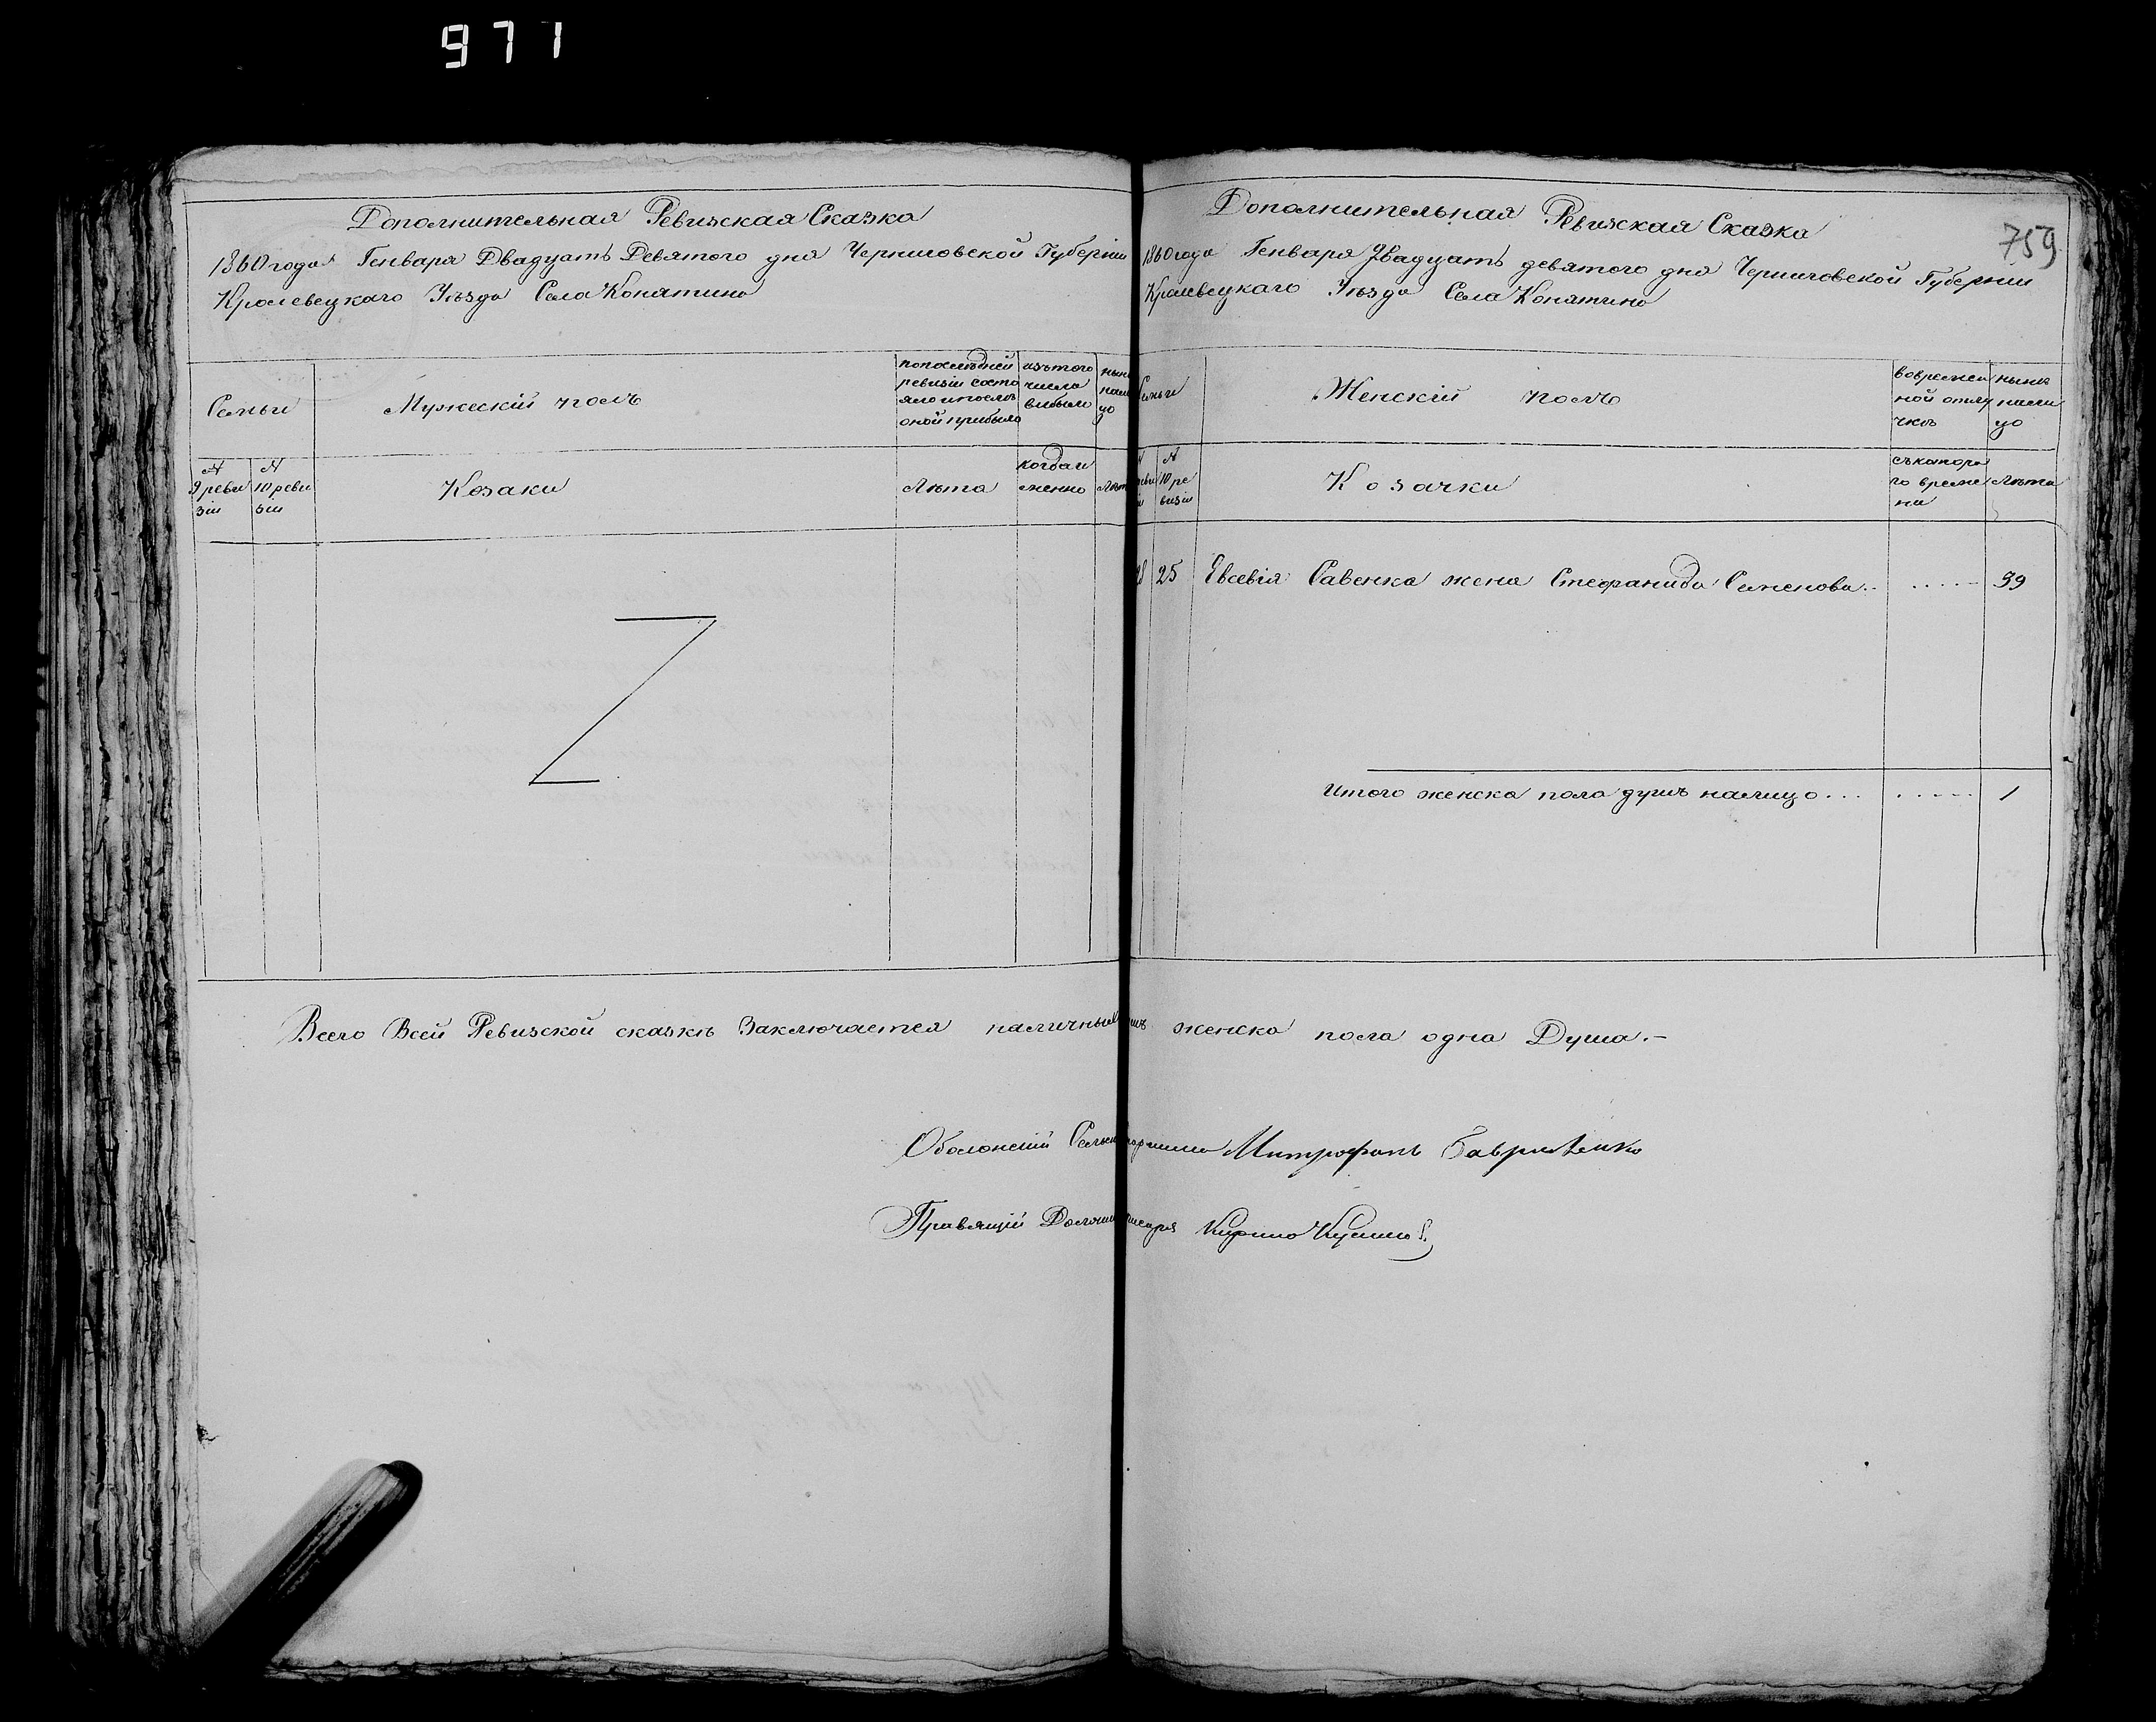 971
Дополнительная Ревизская Сказка
1860 года Генваря Двадцать Девятого дня Черниговской Губерніи
Кролевецкаго Уѣзда Села Конятино
Семьи
Мужескій полъ
по последней
ревизіи состо
яло и после
оной прибыло
изъ того
числа
выбыло
№
9 реви
зіи
№
10 реви
зіи
Козаки
Лѣта
когда и
менно
759
Дополнительная Ревизская Сказка
1860 года Генваря Двадцать девятого дня Черниговской Губерніи
Кролевецкаго Уѣзда Села Конятино
Женскій полъ
во времен
ной отлу
чкѣ
нынѣ
нали
цо
№
10 ре
визіи
Козачки
съ котора
го време
ни
Лѣта
25 Евсевія Савенка жена Стефанида Семенова.. ..... 39
Итого женска пола душъ налицо... ..... 1
Всего Всей Ревизской сказкѣ Заключается наличныхъ женска пола одна Душа.-
Оболонскій Митрофанъ Гавриленко
Правящій Кирило